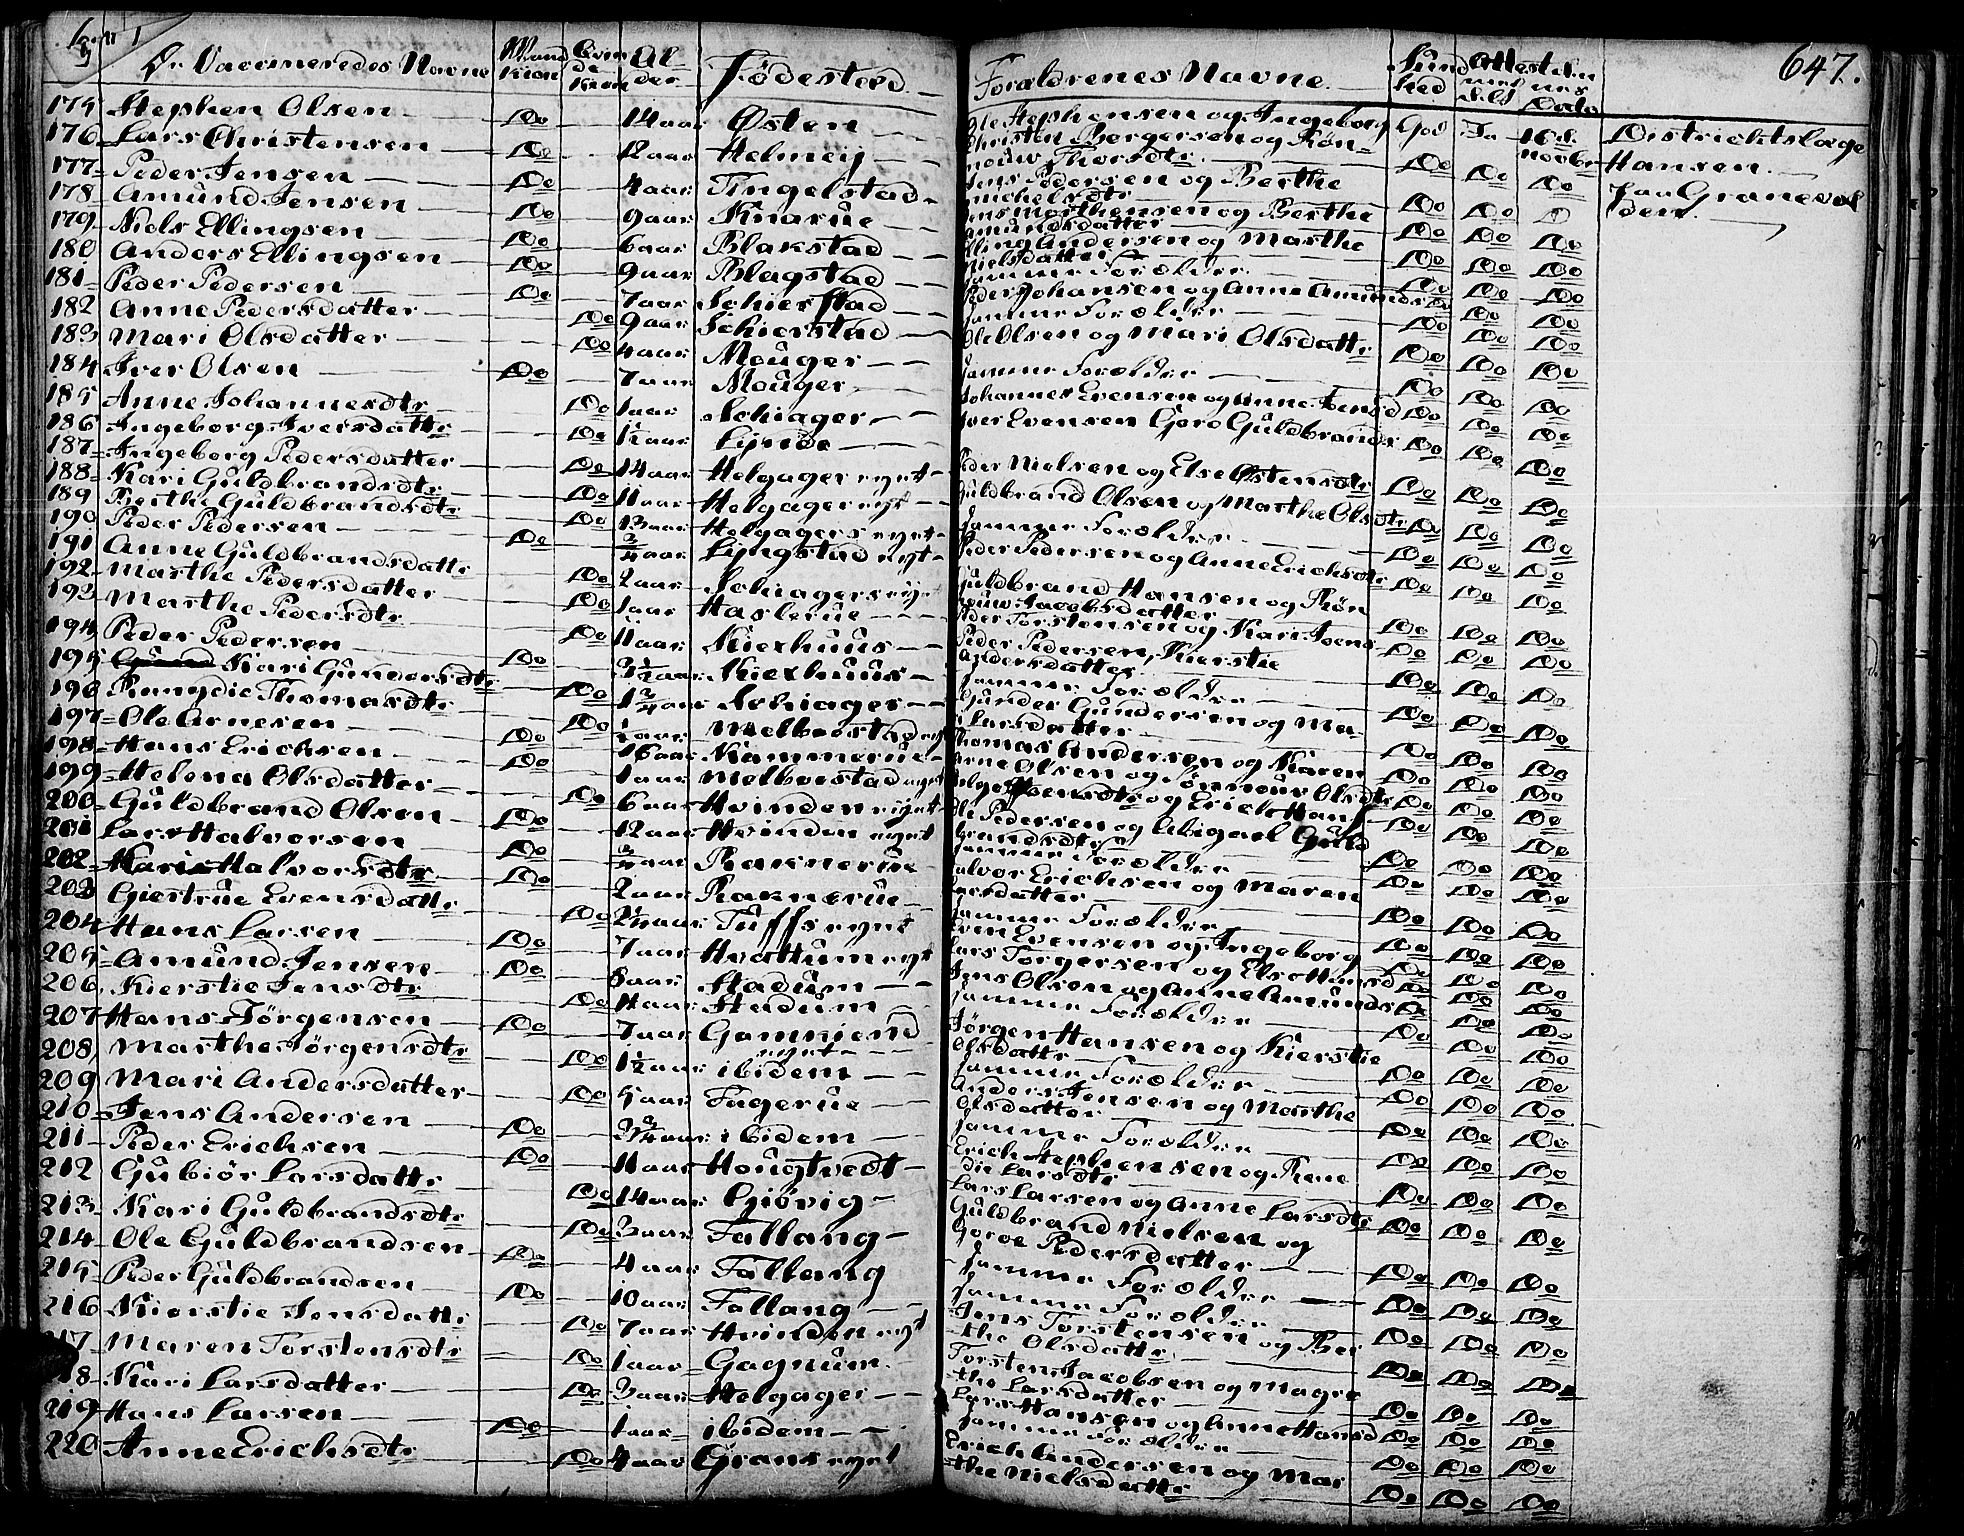 De Vaccineredes Navne Mand Kiön Qvinde Kiøn Alder Födested
Forældrenes Navne Sund hed Attestens Dato 647.
175 Stephen Olsen Do 14 aar Østen Ole Stephensen og Ingeborg God Ja 16d. novbr Districhtslæge
176 Lars Christensen Do 12 aar Helmeij Christen Bergersen og Rön- nouw Thorsdtr Do Do Do Hansen
177 Peder Jensen Do 4 aar Tingelstad Jens Pedersen og Berthe Michelsdtr Do Do Do paa Granevol den.
178 Amund Jensen Do 9 aar Knarue Jens Morthensen og Berthe Amundsdatter Do Do Do
179 Niels Ellingsen Do 6 aar Blakstad Elling Andersen og Marthe Nielsdatter Do Do Do
180 Anders Ellingsen Do 9 aar Blagstad Samme Forældre Do Do Do
181 Peder Pedersen Do 7 aar Schierstad Peder Johansen og Anne Amunds Do Do Do
182 Anne Pedersdatter Do 9 aar Schierstad Samme Forældre Do Do Do
183 Mari Olsdatter Do 4 aar Mouger Ole Olsen og Mari Olsdattr Do Do Do
184 Iver Olsen Do 7 aar Mouger Samme Forældre Do Do Do
185 Anne Johannesdtr Do 1 aar Schiager Johannes Evensen og Anne Jensd Do Do Do
186 Ingeborg Iversdattr Do 12 aar Lynde Iver Evensen Gjoro Guldbrands Do Do Do
187 Ingeborg Pedersdatter Do 14 aar Helgager eyet Peder Nielsen og Else Østensdtr Do Do Do
188 Kari Guldbrandsdtr Do 11 aar Helgager eyt Guldbrand Olsen og Marthe Olsdtr Do Do Do
189 Berthe Guldbrandsdtr Do 13 aar Helgagers eyet Samme Forældre Do Do Do
190 Peder Pedersen Do 3/4 aar Lyngstad eyt Peder Pedersen og Anne Erichsdtr Do Do Do
191 Anne Guldbrandsdattr Do 2 aar Schiagers eyet Guldbrand Hansen og Rön nouw Jacobsdatter Do Do Do
192 Marthe Pedersdatter Do 1 aar Haslerue Peder Torstensen og Kari Ivens Do Do Do
193 Marthe Pedersdtr Do 11 aar Kiexhuus Peder Pedersen, Kierstie Andersdatter Do Do Do
194 Peder Pedersen Do 3 1/2 aar Kiexhuus Samme Forældre Do Do Do
195 Kari Gundersdtr Do 1 3/4 aar Schiager Gunder Gundersen og Ma- ri Larsdatter Do Do Do
196 Rangdie Thomasdtr Do 1 aar Melboestad eyt Thomas Andersen og Karen Do Do Do
197 Ole Arnesen Do 16 aar Kammerue Arne Olsen og Rönnouv Olsdtr Do Do Do
198 Hans Erichsen Do 1 aar Melboestad eyet Helge Iversdtr og Erich Hans Do Do Do
199 Helena Olsdatter Do 6 aar Hvinden eyet Ole Pedersen og Abigael Guld brandsdtr Do Do Do
200 Guldbrand Olsen Do 12 aar Hvinden eyet Samme Forældre Do Do Do
201 Lars Halvorsen Do 3/4 aar Raknerue Halvor Erichsen og Maren Larsdatter Do Do Do
202 Kari Halvorsdtr Do 2 aar Raknerue Samme Forældre Do Do Do
203 Giertrue Evensdattr Do 2 1/2 aar Tuffs eyet Even Evensen og Ingeborg Do Do Do
204 Hans Larsen Do 7 aar Hvattum eyt Lars Torgersen og Else Hansd Do Do Do
205 Amund Jensen Do 8 aar Stadum Jens Olsen og Anne Amundsdr Do Do Do
206 Kierstie Jensdtr Do 4 aar Stadum Samme Forældre Do Do Do
207 Hans Jörgensen Do 7 aar Gamkiend eyet Jörgen Hansen og Kierstie Olsdattr Do Do Do
208 Marthe Jörgensdtr Do 1 1/2 aar ibidem Samme Forældre Do Do Do
209 Mari Andersdatter Do 5 aar Fagerue Anders Jensen og Marthe Olsdatter Do Do Do
210 Jens Andersen Do 3 3/4 aar ibidem Samme Forældre Do Do Do
211 Peder Erichsen Do 11 aar Hougtvedt Erich Stephensen og Rane die Larsdtr Do Do Do
212 Gubiör Larsdattr Do 14 aar Gjövig Lars Larsen og Anne Larsdtr Do Do Do
213 Kari Guldbrandsdtr Do 3 aar Fallang Guldbrand Nielsen og Goroe Pedersdatter Do Do Do
214 Ole Guldbrandsen Do 4 aar Fallang Samme Forældre Do Do Do
215 Peder Guldbrandsen Do 10 aar Fallang Samme Forældre Do Do Do
216 Kierstie Jensdattr Do 7 aar Hvinden eyt Jens Torstensen og Ber the Olsdattr Do Do Do
217 Maren Torstensdtr Do 1 aar Gagnum Torsten Jacobsen og Magre the Larsdatter Do Do Do
218 Kari Larsdatter Do 3 aar Helgager Lars Hansen og Anne Hansd Do Do Do
219 Hans Larsen Do 1 aar ibidem Samme Forældre Do Do Do
220 Anne Erichsdtr Do 4 aar Grans eyet Erich Andersen og Mar the Nielsdattr Do Do Do